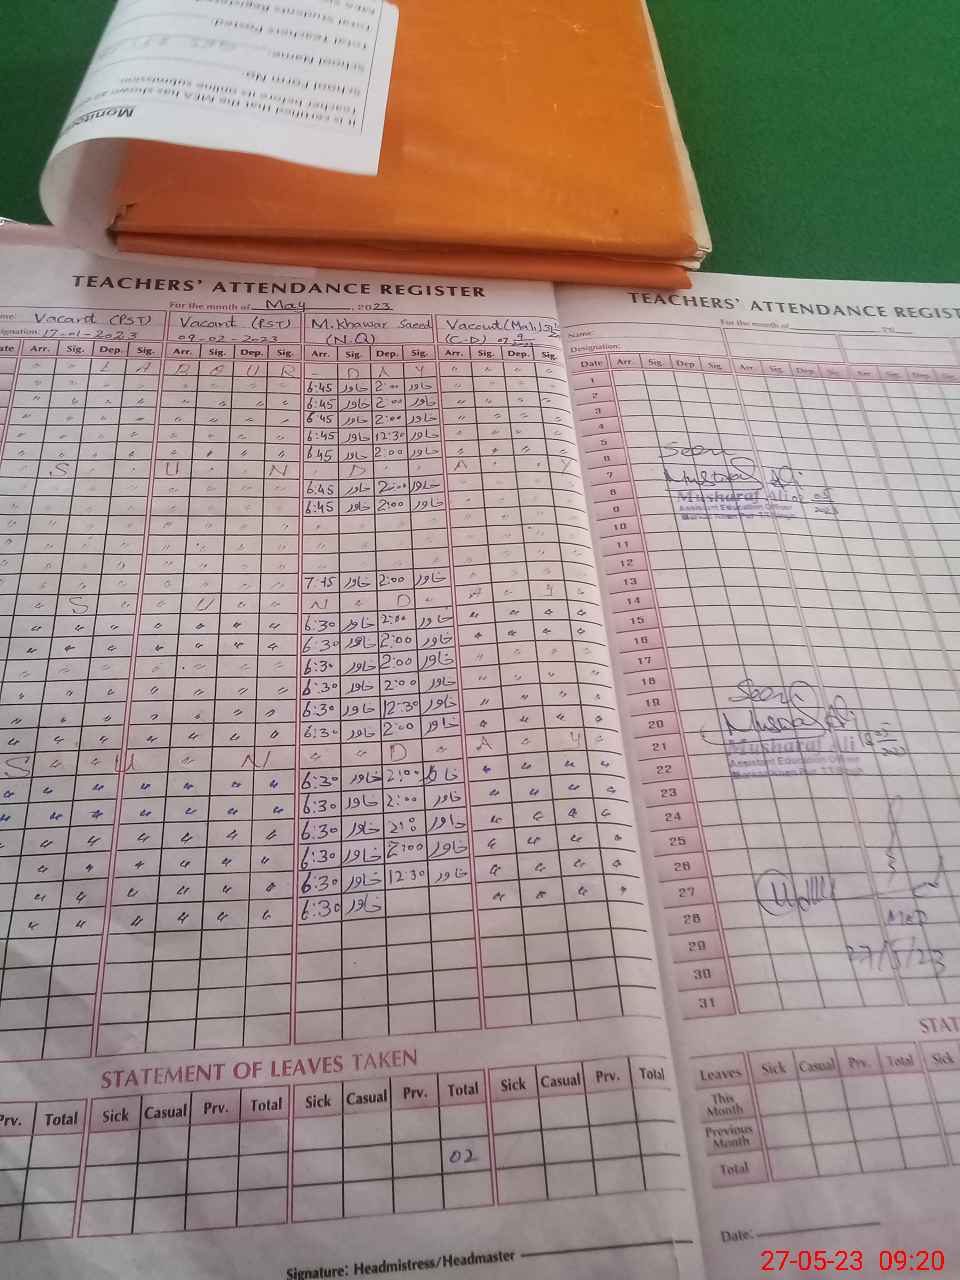 Total Teachers Posted:
School Name:
School Form No.
Teacher before its online submission.
It is certified that the MEA has shown
TEACHERS' ATTENDANCE REGISTER
For the month of May, 2023
Vacant (PST) Vacant (PST) M. Khawar Saeed Vacant
17-01-2023 09-02-2023 (N.Q) (C-D)
Arr. Sig. Dep. Sig. Arr. Sig. Dep. Sig. Arr. Sig. Dep. Sig. Arr. Sig. Dep. Sig.
L A B O U R D A Y
6:45 خاور 2:00 خاور
6:45 خاور 2:00 خاور
6:45 خاور 2:00 خاور
6:45 خاور 12:30 خاور
6:45 خاور 2:00 خاور
S U N D A Y
6:45 خاور 2:00 خاور
6:45 خاور 2:00 خاور
7:45 خاور 2:00 خاور
S U N D A Y
6:30 خاور 2:00 خاور
6:30 خاور 2:00 خاور
6:30 خاور 2:00 خاور
6:30 خاور 2:00 خاور
6:30 خاور 12:30 خاور
6:30 خاور 2:00 خاور
S U N D A Y
6:30 خاور 2:00 خاور
6:30 خاور 2:00 خاور
6:30 خاور 2:00 خاور
6:30 خاور 2:00 خاور
6:30 خاور 12:30 خاور
6:30 خاور
STATEMENT OF LEAVES TAKEN
Prv. Total Sick Casual Prv. Total Sick Casual Prv. Total Sick Casual Prv. Total
02
Signature: Headmistress/Headmaster
TEACHERS' ATTENDANCE REGIST
For the month of 20
Name:
Designation:
Date Arr. Sig. Dep. Sig. Arr. Sig. Dep. Sig. Arr. Sig. Dep.
1
2
3
4
5
6 Seen
7
8 Musharaf Ali
9 Assistant Education Officer
10
11
12
13
14
15
16
17
18
19 Seen
20
21 Musharaf Ali
Assistant Education Officer
22
23
24
25
26
27
28
29 27/5/23
30
31
STAT
Leaves Sick Casual Prv. Total Sick
This Month
Previous Month
Total
Date:
27-05-23 09:20